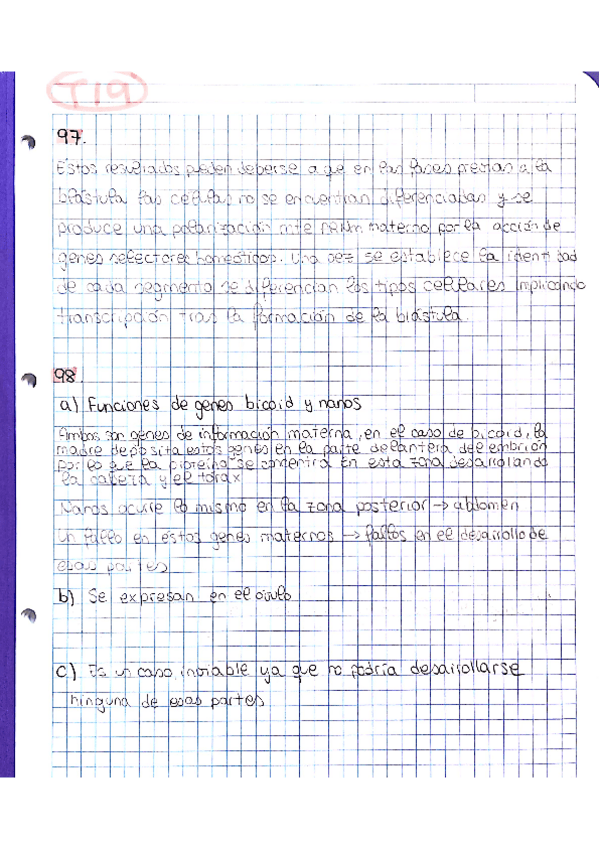 T19
97.
Estos resultados pueden deberse a que en las fases previas a la
blástula las células no se encuentran diferenciadas y se
produce una polarización ante RNAm materno por la acción de
genes selectores homeóticos. Una vez se establece la identidad
de cada segmento se diferencian los tipos celulares implicando
transcripción tras la formación de la blástula.
98.
a) Funciones de genes bicoid y nanos
Ambos son genes de información materna, en el caso de bicoid, la
madre deposita estos genes en la parte delantera del embrión
por lo que la proteína se concentra en esta zona desarrollando
la cabeza y el tórax
Nanos ocurre lo mismo en la zona posterior → abdomen
Un fallo en estos genes maternos → fallos en el desarrollo de
esas partes
b) Se expresan en el óvulo
c) Es un caso inviable ya que no podría desarrollarse
ninguna de esas partes